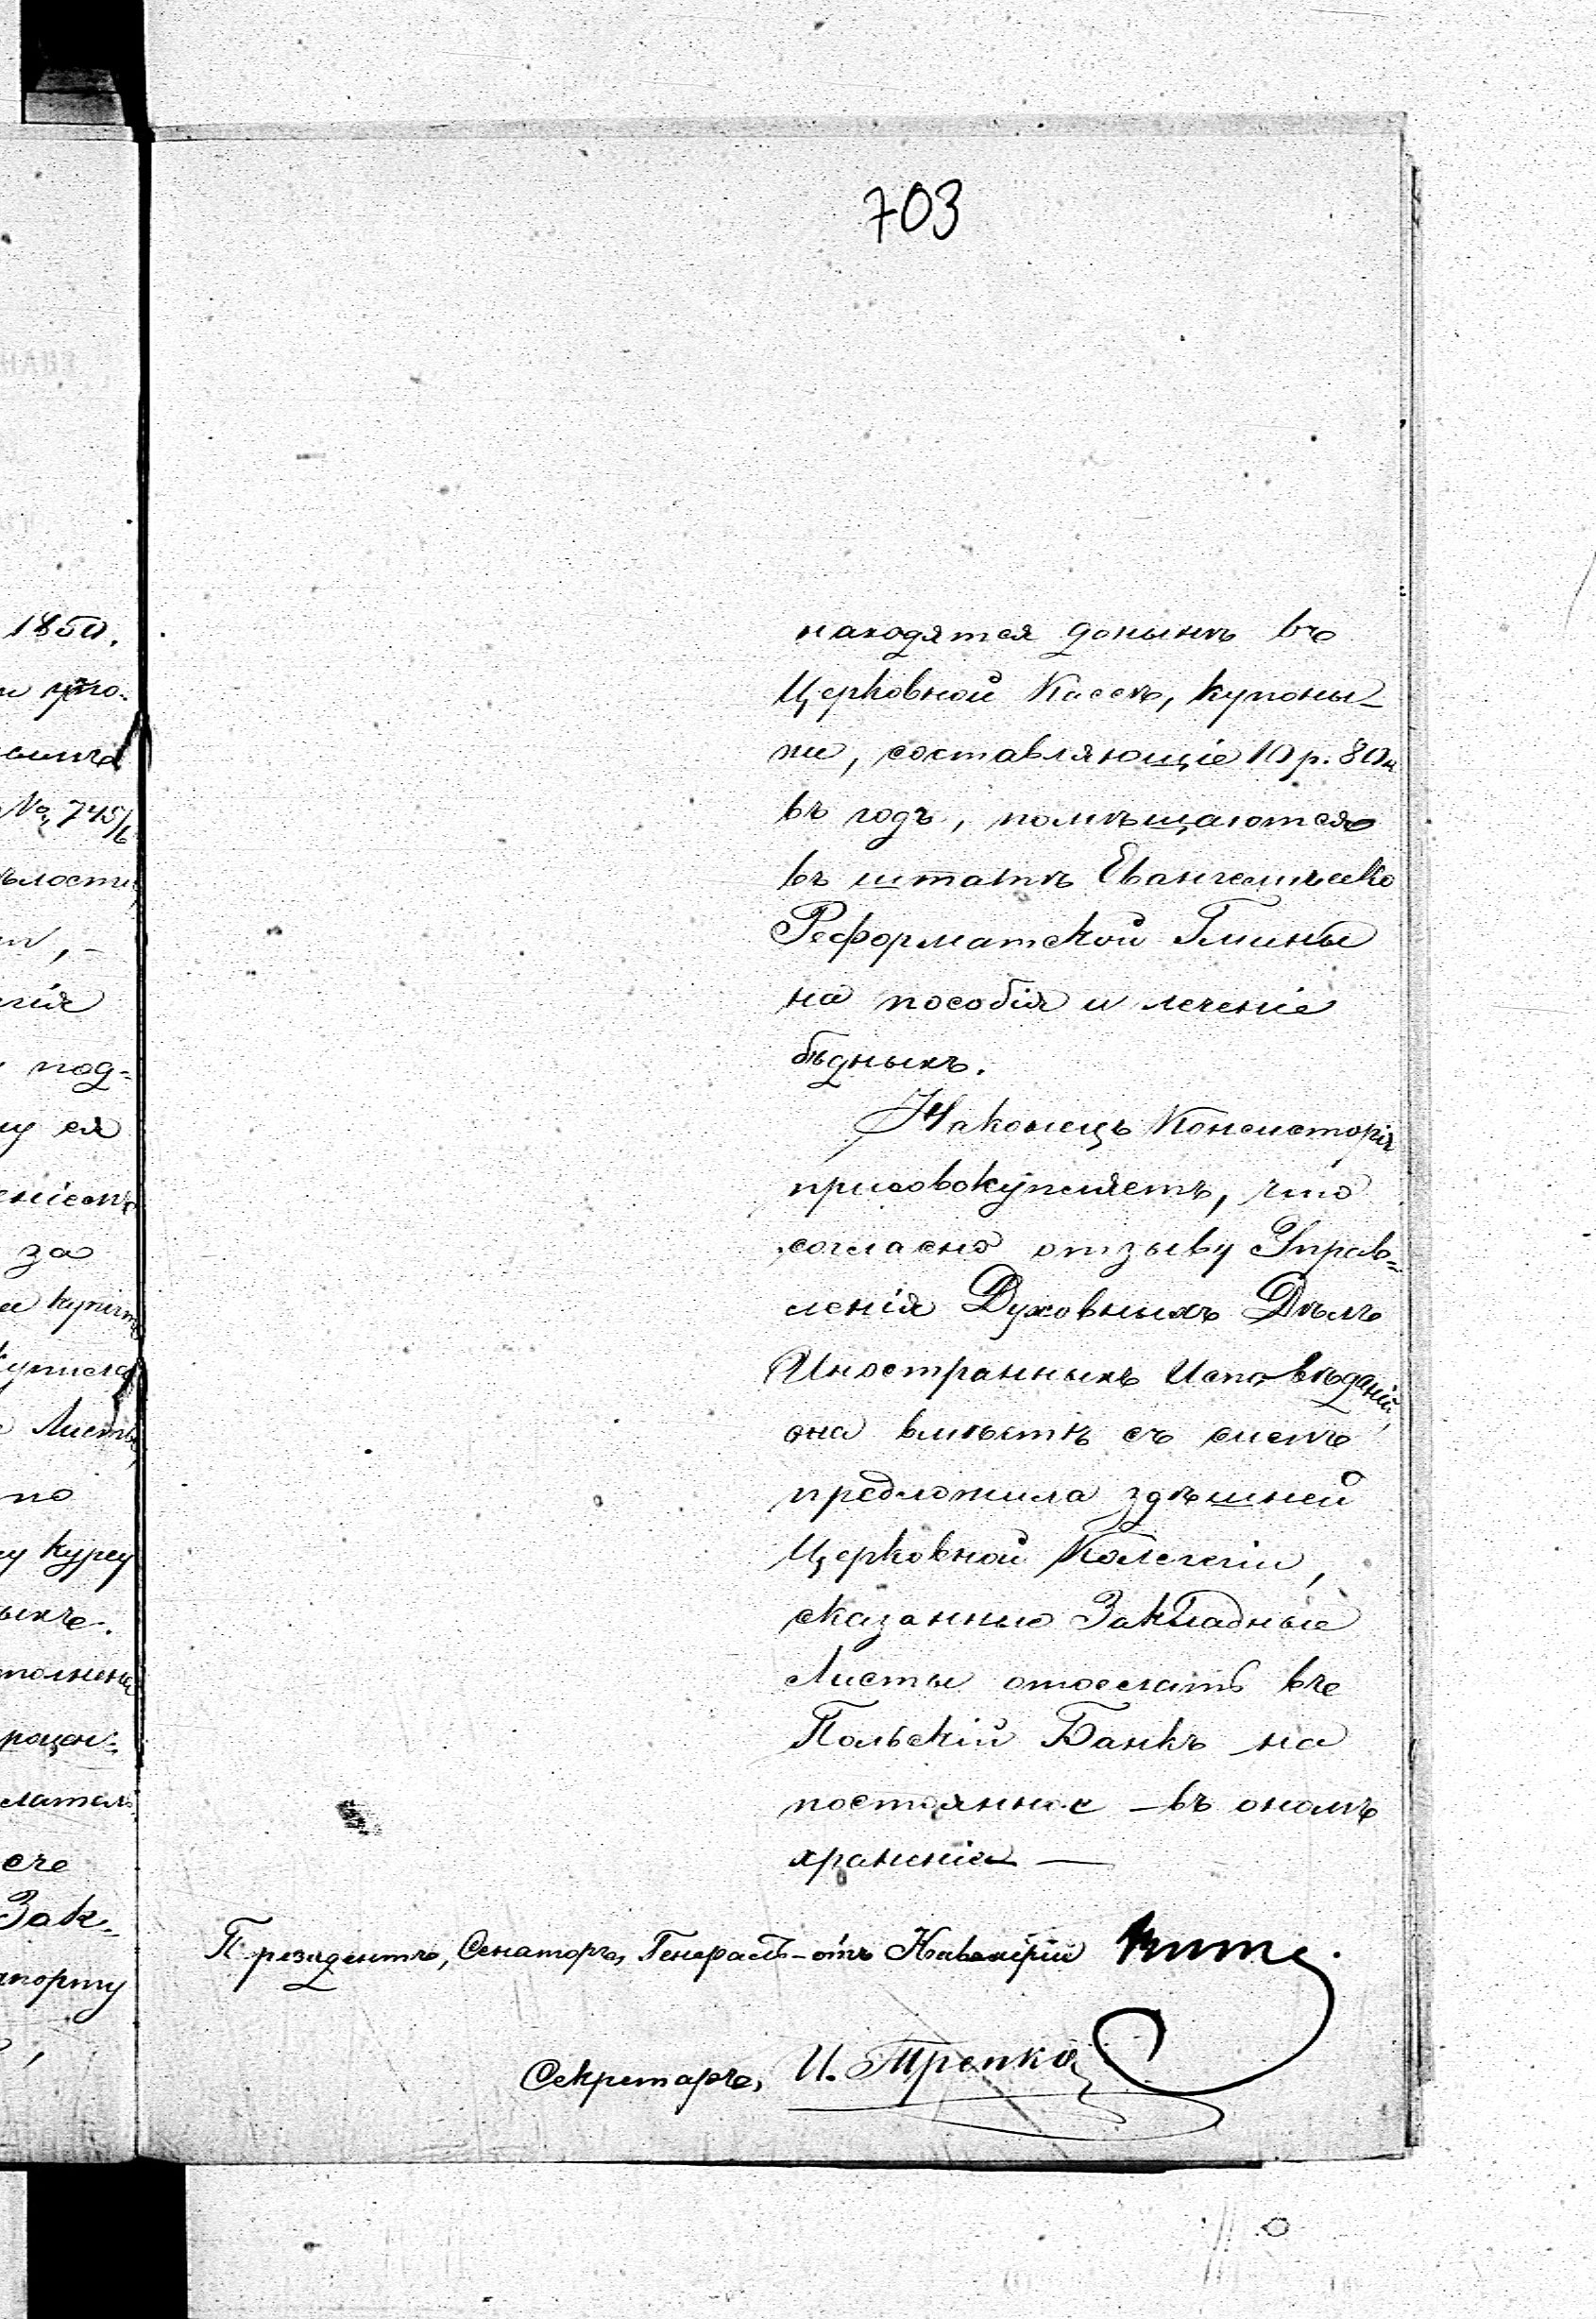 703
1850.
№ 745/6
под-
за
Листы
по
курсу
Зак-
находятся донынѣ въ
Церковной Кассѣ, купоны-
же, составляющіе 10 р. 80 к
въ годъ, помѣщаются
въ штатѣ Евангелическо
Реформатской Гмины
на пособія и леченіе
бѣдныхъ.
Наконецъ Консисторія
присовокупляетъ, что
согласно отзыву Управ-
ленія Духовныхъ Дѣлъ
Иностранныхъ Исповѣданій,
она вмѣстѣ съ симъ
предложила здѣшней
Церковной Колегіи,
сказанные Закладные
Листы отослать въ
Польскій Банкъ на
постоянное – въ ономъ
храненіе —
Президентъ, Сенаторъ, Генералъ-отъ Кавалеріи
Секретарь, И. Трепка